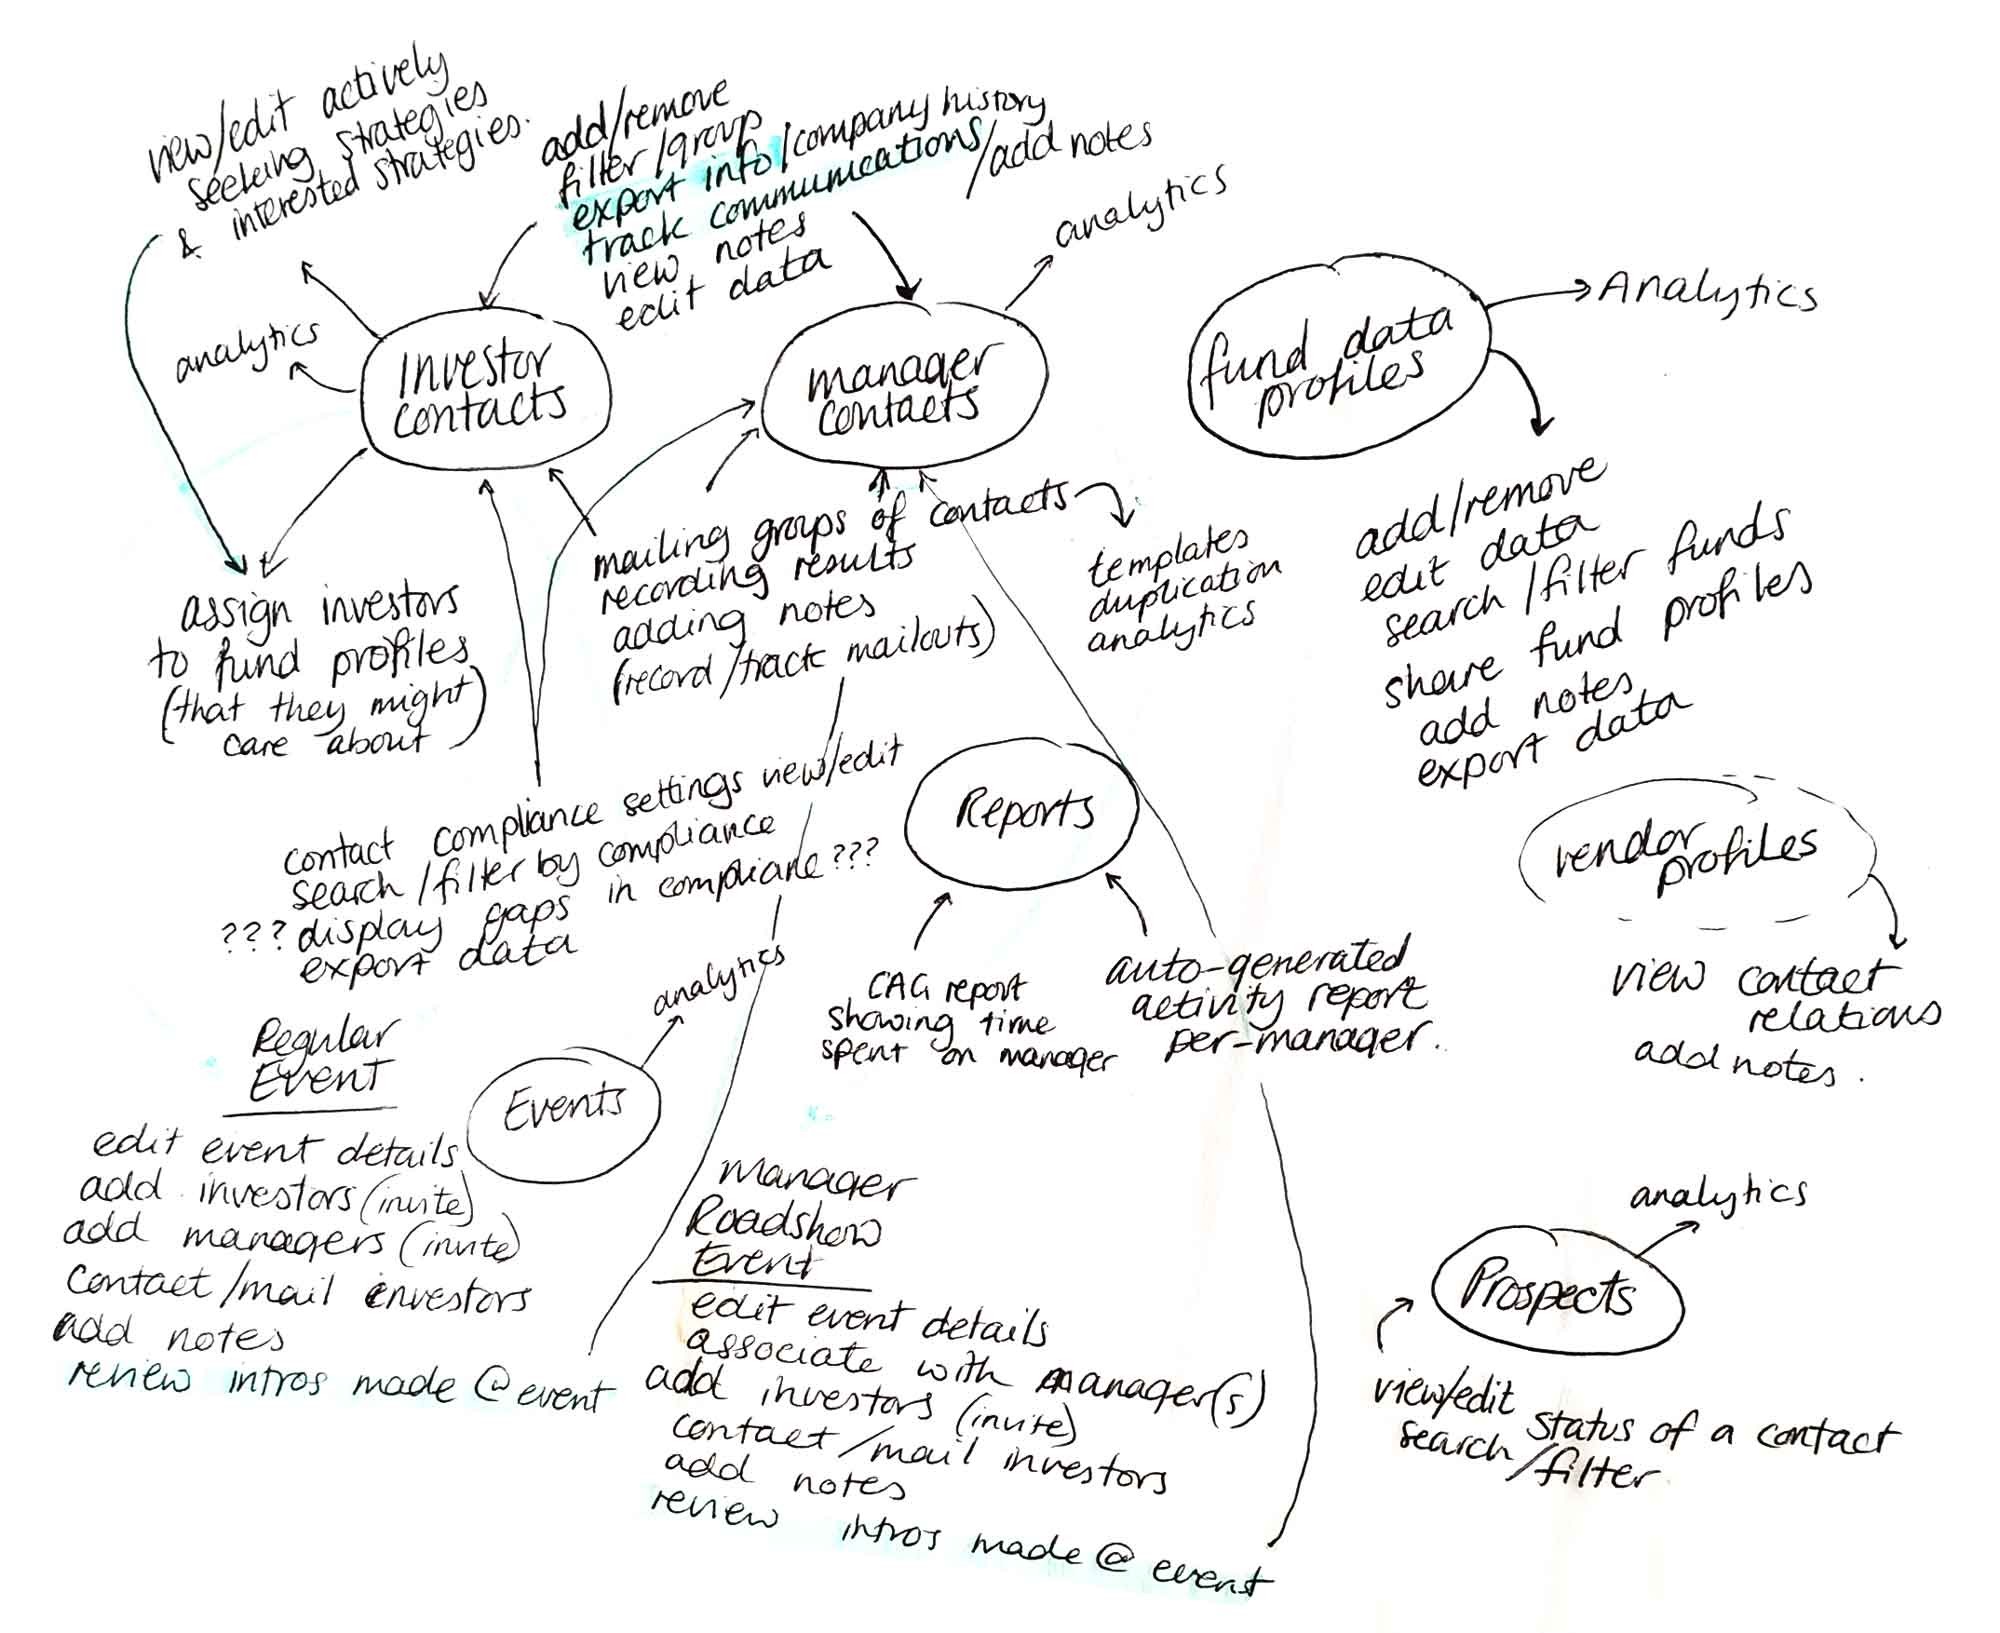 view/edit actively
seeking strategies
& interested strategies.
add/remove
filter/group
export info/company history
track communications/add notes
view notes
edit data
analytics
analytics
Investor
contacts
manager
contacts
fund data
profiles
Analytics
add/remove
edit data
search/filter funds
share fund profiles
add notes
export data
mailing groups of contacts
recording results
adding notes
(record/track mailouts)
templates
duplication
analytics
assign investors
to fund profiles
(that they might
care about)
contact compliance settings view/edit
search/filter by compliance
??? display gaps in compliane ???
export data
Reports
CAG report
showing time
spent on manager
auto-generated
activity report
per-manager.
vendor
profiles
view contact
relations
add notes.
analytics
Events
Regular
Event
edit event details
add investors (invite)
add managers (invite)
contact/mail investors
add notes
review intros made @ event
manager
Roadshow
Event
edit event details
associate with manager(s)
add investors (invite)
contact/mail investors
add notes
review intros made @ event
analytics
Prospects
view/edit status of a contact
search/filter